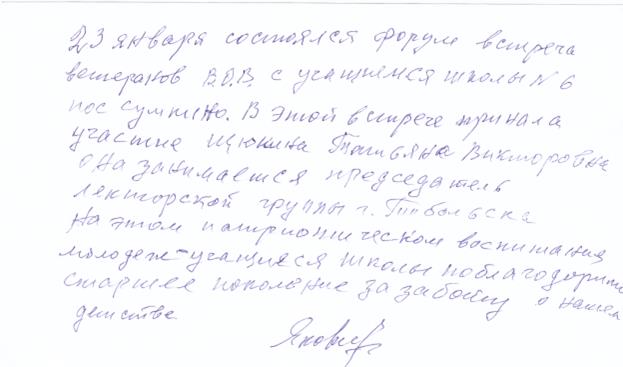 23 января состоялся форум встреча
ветеранов В.О.В. с учащиемся школы N 6
пос сумкино. В этой встрече принала
участие Щукина Татьяна Викторовна
она занимается председатель
лекторской группы г. Тобольска
На этом патриотическом воспитания
молодеж-учащиеся школы поблагодарили
старшее поколение за заботу о нашем
детстве